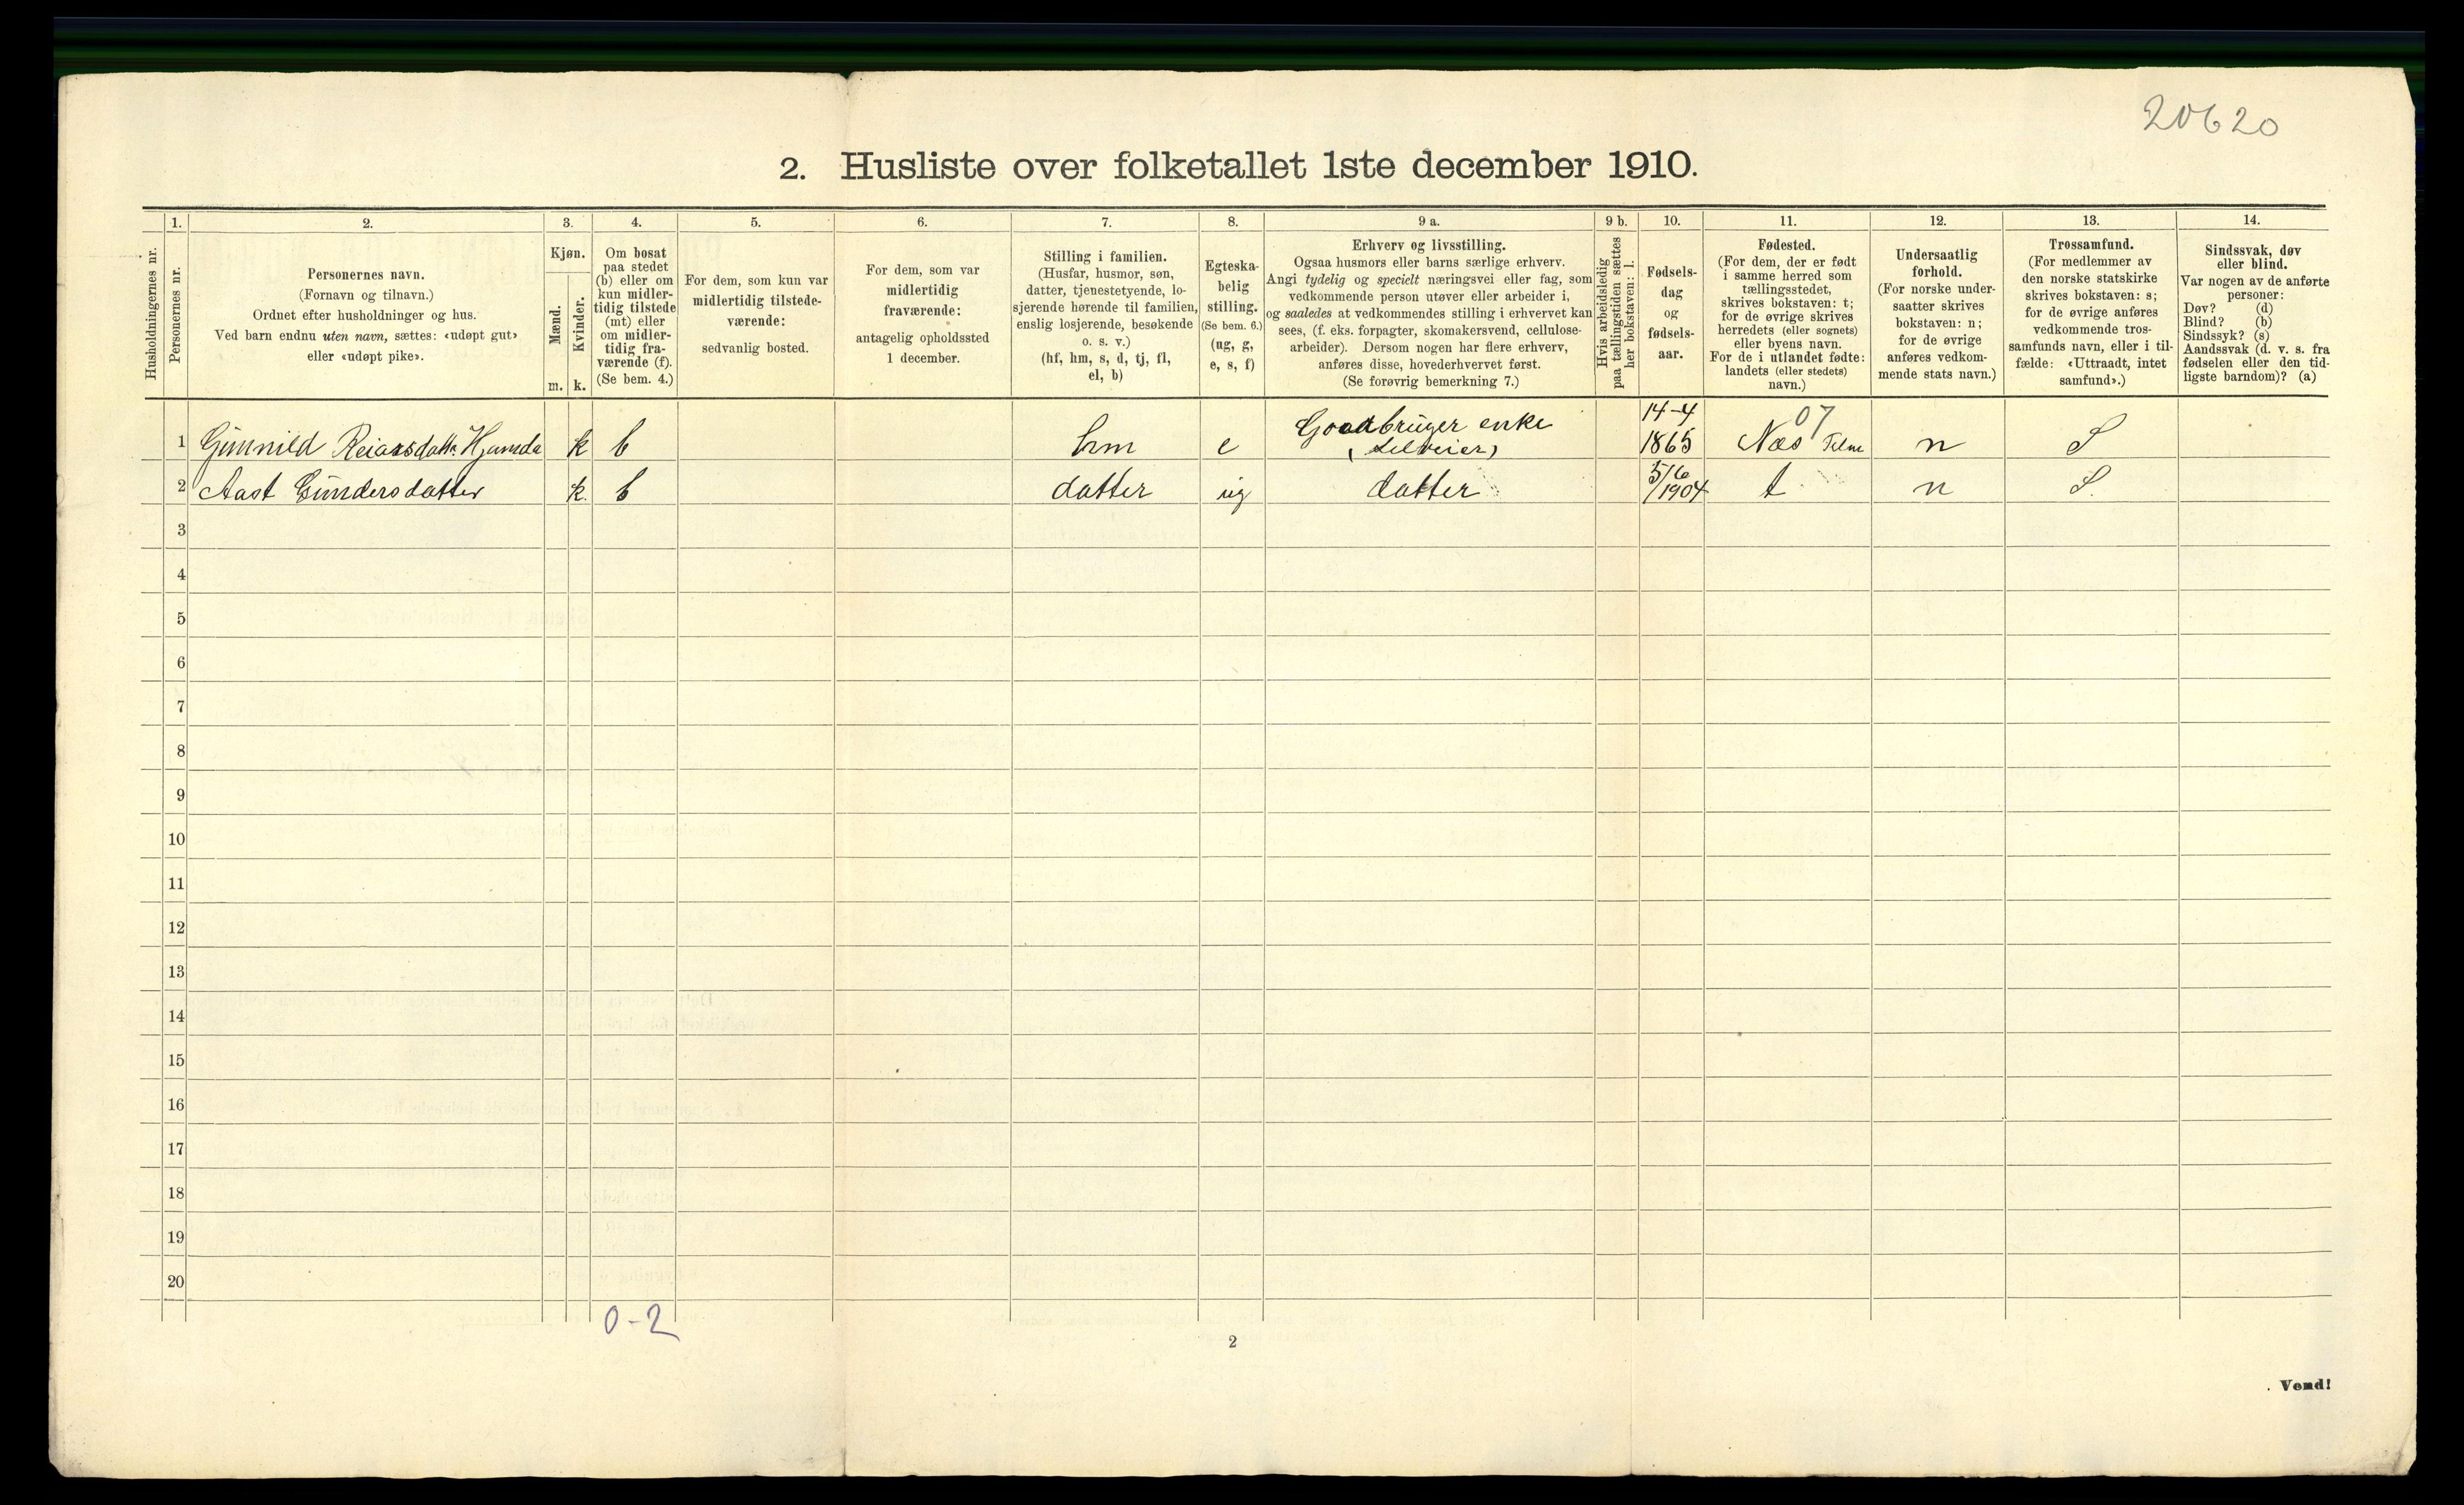 20620
2. Husliste over folketallet 1ste december 1910.
Husholdningernes nr.
1.
Personernes nr.
2.
Personernes navn.
(Fornavn og tilnavn.)
Ordnet efter husholdninger og hus.
Ved barn endnu uten navn, sættes: «udøpt gut»
eller «udøpt pike».
3.
Kjøn.
Mænd.
m.
Kvinder.
k.
4.
Om bosat
paa stedet
(b) eller om
kun midler-
tidig tilstede
(mt) eller
om midler-
tidig fra-
værende (f).
(Se bem. 4.)
5.
For dem, som kun var
midlertidig tilstede-
værende:
sedvanlig bosted.
6.
For dem, som var
midlertidig
fraværende:
antagelig opholdssted
1 december.
7.
Stilling i familien.
(Husfar, husmor, søn,
datter, tjenestetyende, lo-
sjerende hørende til familien,
enslig losjerende, besøkende
o. s. v.)
(hf, hm, s, d, tj, fl,
el, b)
8.
Egteska-
belig
stilling.
(Se bem. 6.)
(ug, g,
e, s, f)
9 a.
Erhverv og livsstilling.
Ogsaa husmors eller barns særlige erhverv.
Angi tydelig og specielt næringsvei eller fag, som
vedkommende person utøver eller arbeider i,
og saaledes at vedkommendes stilling i erhvervet kan
sees, (f. eks. forpagter, skomakersvend, cellulose-
arbeider). Dersom nogen har flere erhverv,
anføres disse, hovederhvervet først.
(Se forøvrig bemerkning 7.)
9 b.
Hvis arbeidsledig
paa tællingstiden sættes
her bokstaven: l.
10.
Fødsels-
dag
og
fødsels-
aar.
11.
Fødested.
(For dem, der er født
i samme herred som
tællingsstedet,
skrives bokstaven: t;
for de øvrige skrives
herredets (eller sognets)
eller byens navn.
For de i utlandet fødte:
landets (eller stedets)
navn.)
12.
Undersaatlig
forhold.
(For norske under-
saatter skrives
bokstaven: n;
for de øvrige
anføres vedkom-
mende stats navn.)
13.
Trossamfund.
(For medlemmer av
den norske statskirke
skrives bokstaven: s;
for de øvrige anføres
vedkommende tros-
samfunds navn, eller i til-
fælde: «Uttraadt, intet
samfund».)
14.
Sindssvak, døv
eller blind.
Var nogen av de anførte
personer:
Døv? (d)
Blind? (b)
Sindssyk? (s)
Aandssvak (d. v. s. fra
fødselen eller den tid-
ligste barndom)? (a)
1 Gunnild Reiarsdatter k b hm e Gaardbruger enke (Selveier) 14-4 1865 07 Næs n S
2 Aast Gundersdatter k. b datter ug datter 5/6 1904 t n S.
3
4
5
6
7
8
9
10
11
12
13
14
15
16
17
18
19
20
0-2
2
Vend!